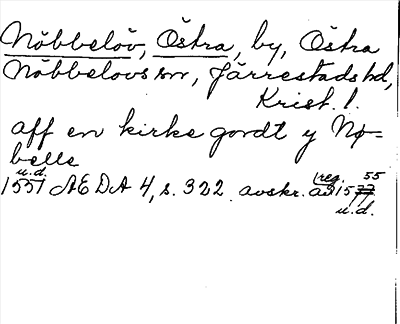 Nöbbelöv, Östra, by, Östra
Nöbbelövs sn, Järrestads hd,
Krist. l.
aff en kirke gordt y Nø=
belle
u.d.
1551 AEDA 4, s. 322 avskr. av reg. 1577 55
u.d.